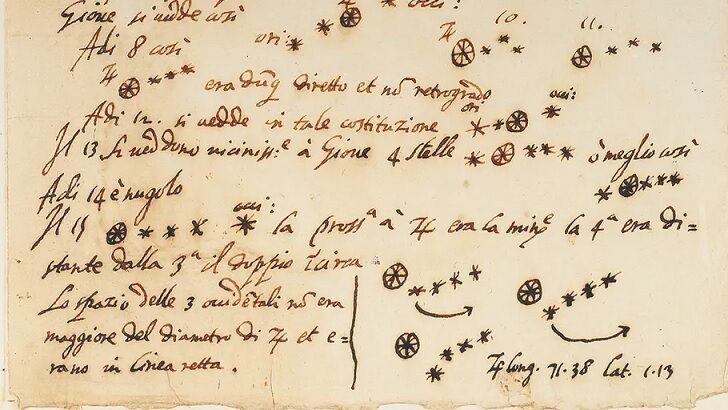 Giove si vedde così
occ:
Adi 8 così
ori:
♃
10.
11.
♃
era dūq diretto et nō retrogrado
ori
occi:
Adi 12. si vedde in tale costituzione
Il 13 si veddono viciniss.ᵉ à Giove 4 stelle
ò meglio così
Adi 14 è nugolo
Il 15
occi:
la prossᵃ à ♃ era la minᵉ la 4ᵃ era di=
stante dalla 3ᵃ il doppio īcirca
Lo spazio delle 3 occidētali nō era
maggiore del diametro di ♃ et e=
rano in linea retta.
♃ long. 71.38 lat. 1.13